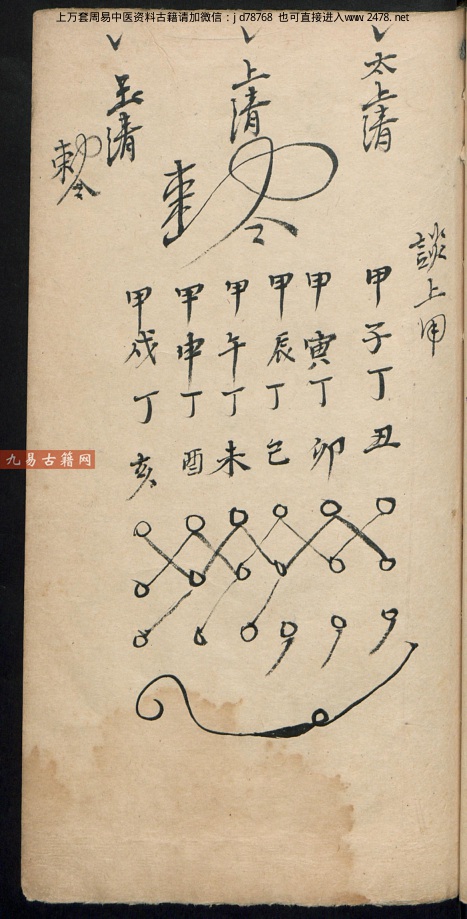 上万套周易中医资料古籍请加微信：jd78768 也可直接进入www.2478.net
談上用
太上清
上清
玉清
敕令
敕令
甲子丁丑
甲寅丁卯
甲辰丁巳
甲午丁未
甲申丁酉
甲戌丁亥
九易古籍网